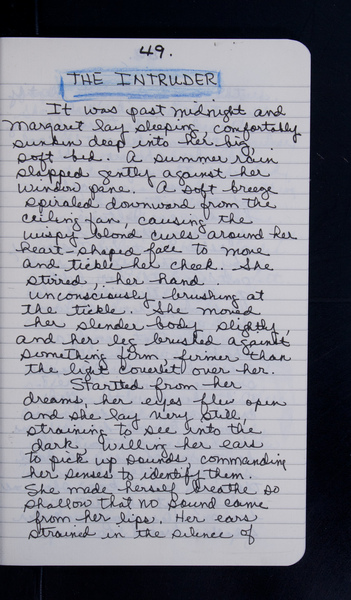 49.
THE INTRUDER
It was past midnight and
Margaret lay sleeping, comfortably
sunken deep into her big,
soft bed. A summer rain
slapped gently against her
window pane. A soft breeze
spiraled downward from the
ceiling fan, causing the
wispy blond curls around her
heart-shaped face to move
and tickle her cheek. She
stirred, her hand
unconsciously brushing at
the tickle. She moved
her slender body slightly,
and her leg brushed against
something firm, firmer than
the light coverlet over her.
Startled from her
dreams, her eyes flew open
and she lay very still,
straining to see into the
dark, willing her ears
to pick up sounds, commanding
her senses to identify them.
She made herself breathe so
shallow that no sound came
from her lips. Her ears
strained in the silence of